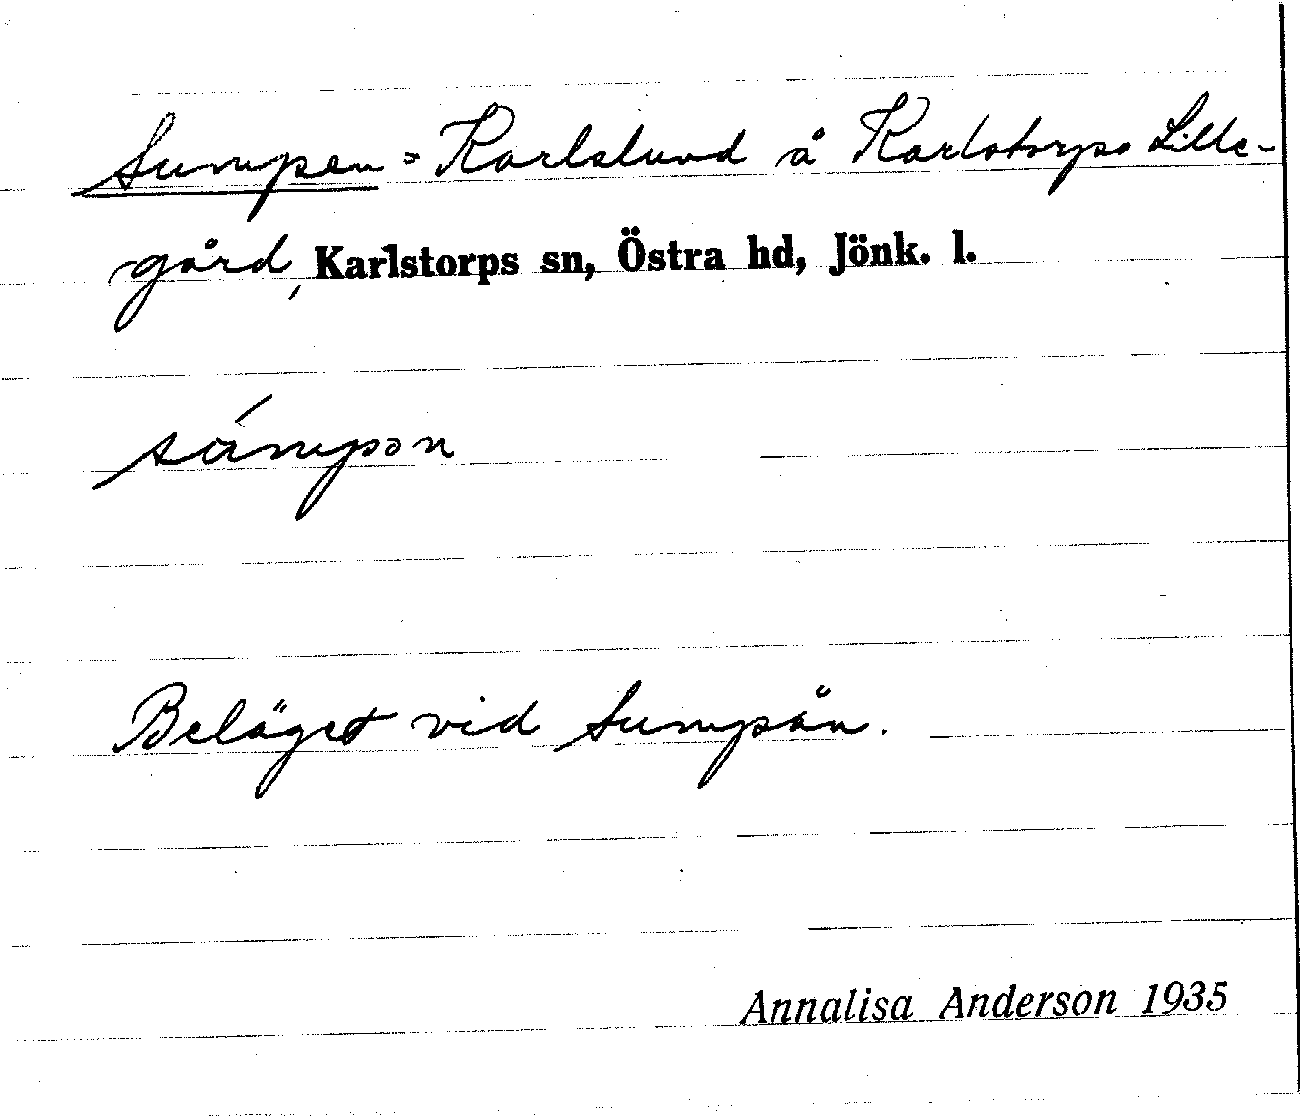 Sumpen = Karlslund å Karlstorps Lille-
gård, Karlstorps sn, Östra hd, Jönk. l.
sámpən
Beläget vid Sumpån.
Annalisa Anderson 1935